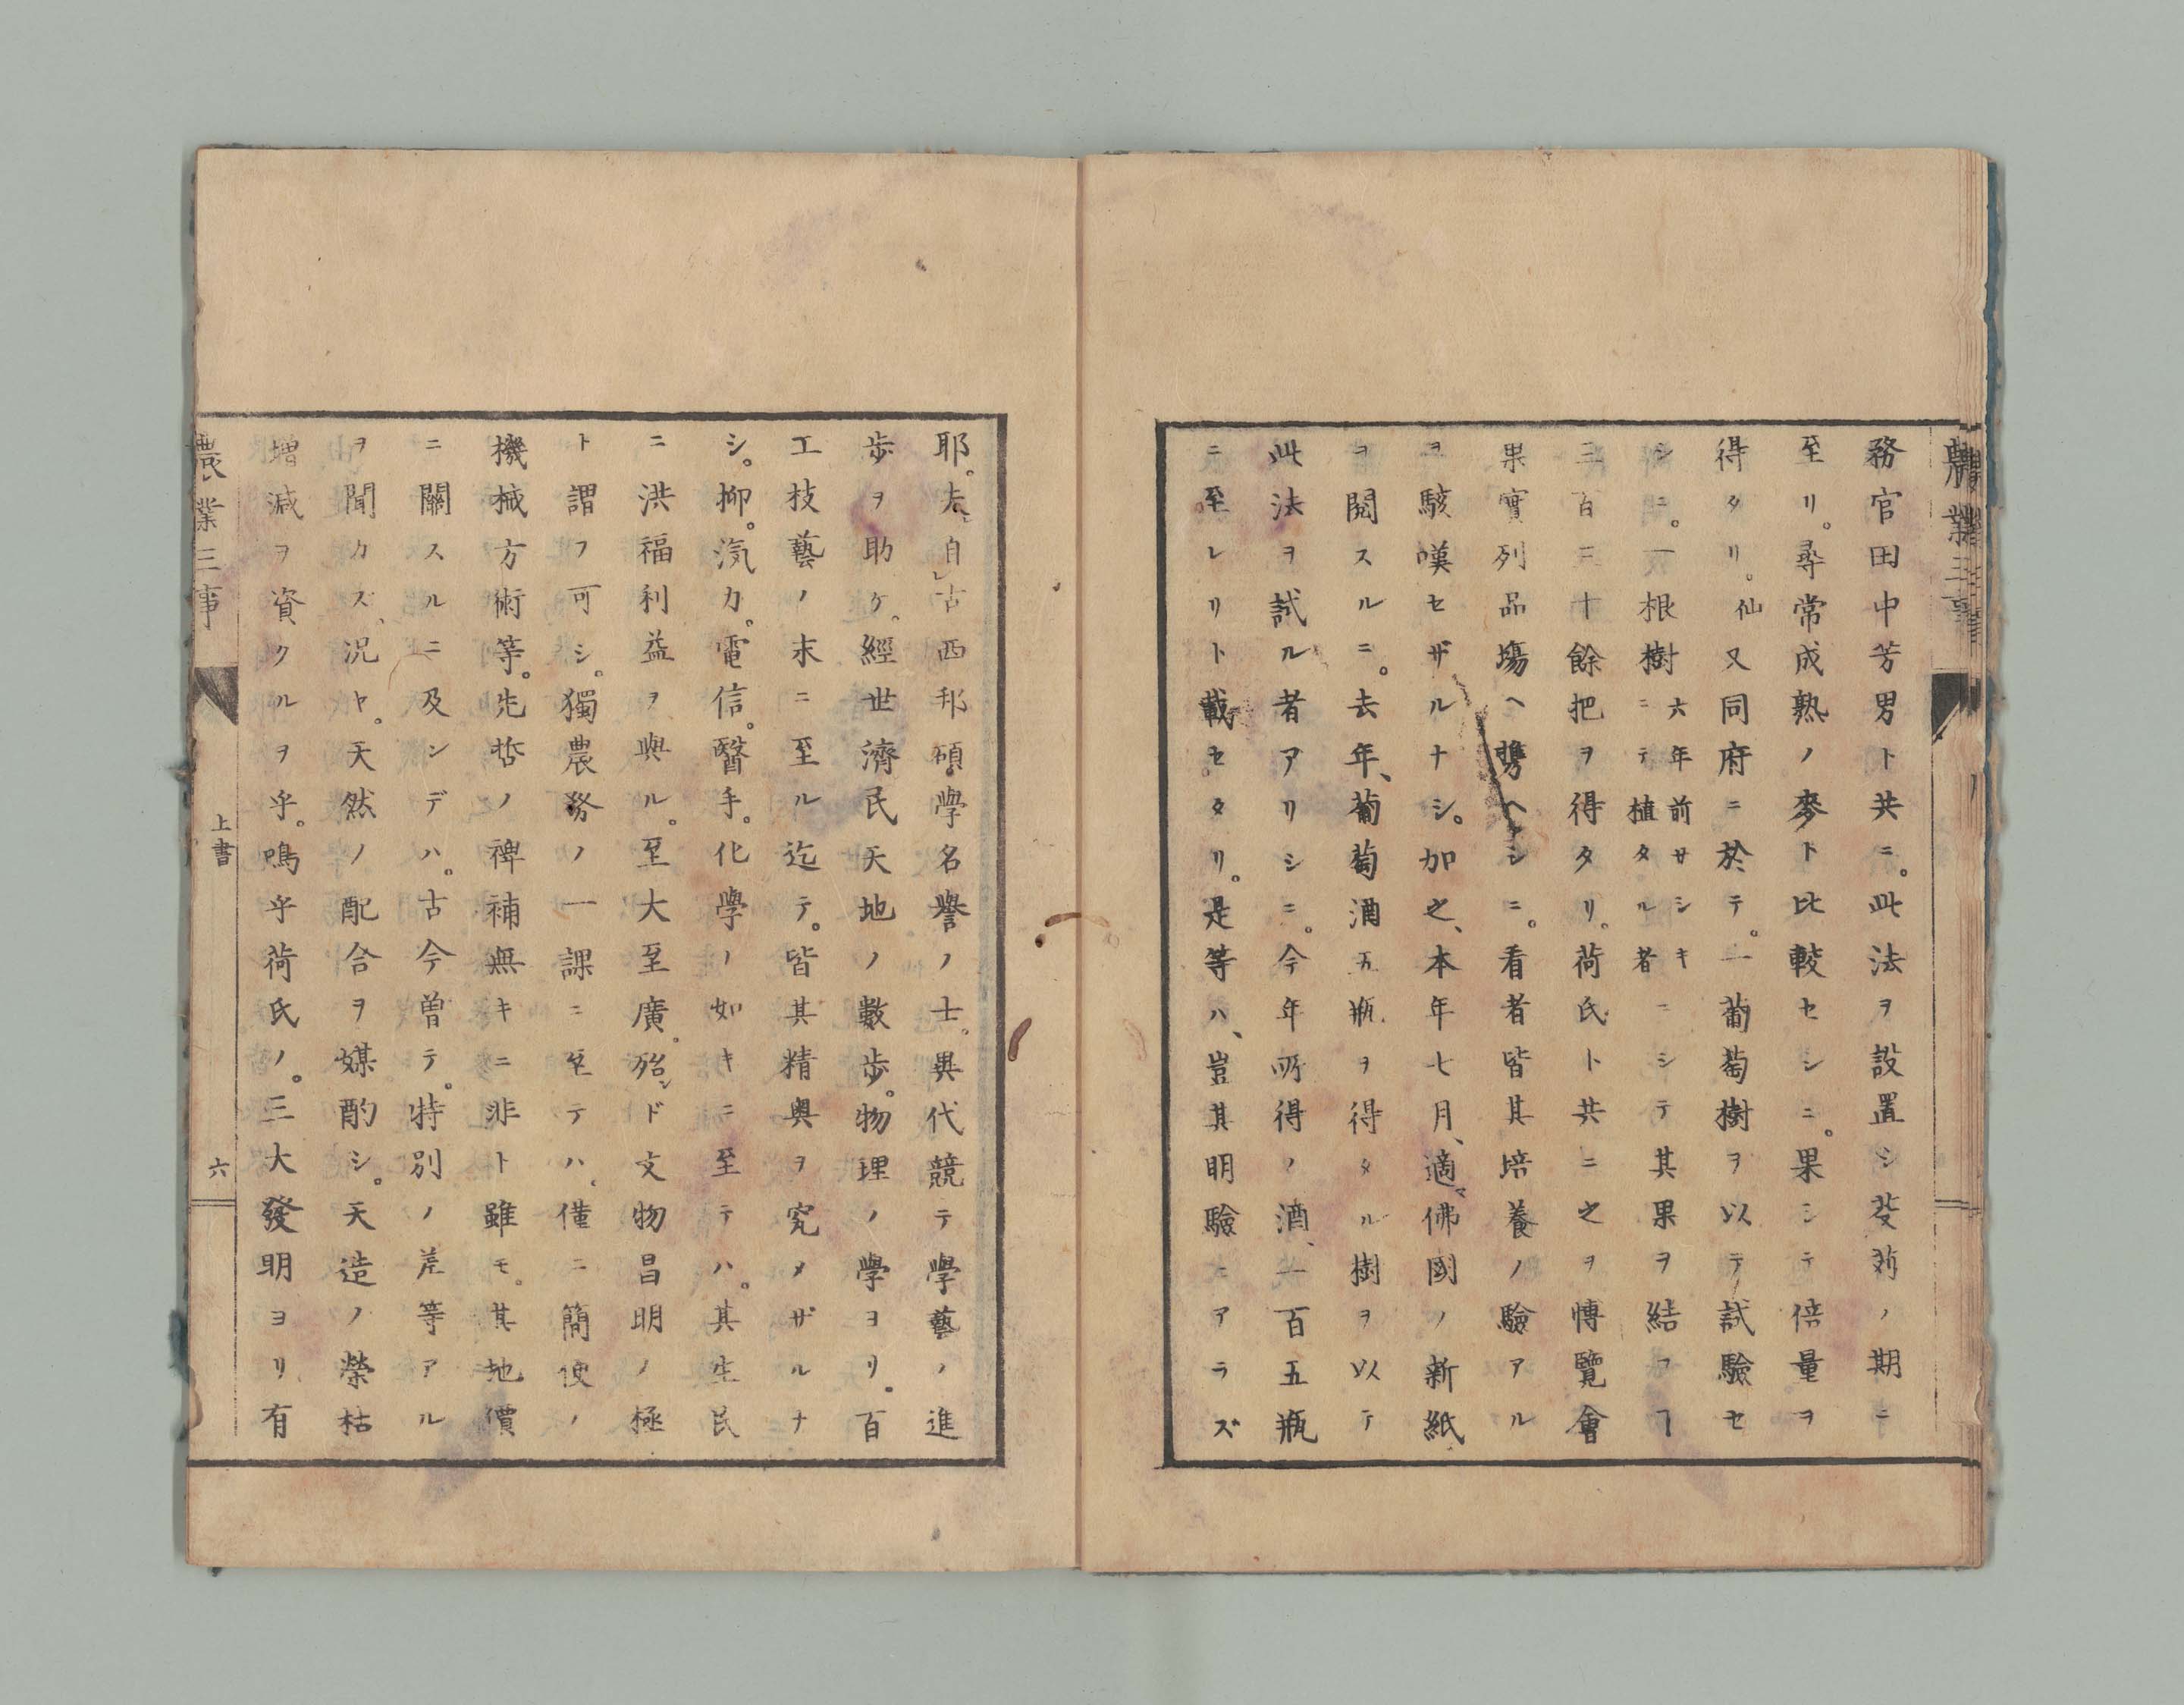 農業三事
務官田中芳男ト共ニ。此法ヲ設置シ芟苅ノ期ニ
至リ。尋常成熟ノ麥ト比較セシニ。果シテ倍量ヲ
得タリ。仙又同府ニ於テ。一葡萄樹ヲ以テ試驗セ
シニ。一根樹六年前サシキニテ植タル者ニシテ其果ヲ結フヿ
三百二十餘把ヲ得タリ。荷氏ト共ニ之ヲ愽覽會
果實列品塲ヘ携ヘシニ。看者皆其培養ノ驗アル
ヲ駭嘆セザルナシ。加之、本年七月、適佛國ノ新紙
ヲ閲スルニ。去年、葡萄酒五瓶ヲ得タル樹ヲ以テ
此法ヲ試ル者アリシニ。今年所得ノ酒、一百五瓶
ニ至レリト載セタリ。是等ハ、豈其明驗ニアラズ
耶。夫自古西邦碩學名譽ノ士。異代競テ學藝ノ進
歩ヲ助ケ。經世濟民天地ノ數歩。物理ノ學ヨリ。百
工枝藝ノ末ニ至ル迄テ。皆其精奥ヲ究メザルナ
シ。抑。汽力。電信。醫手。化學ノ如キニ至テハ。其生民
ニ洪福利益ヲ與ル。至大至廣。殆ンド文物昌明ノ極
ト謂フ可シ。獨農務ノ一課ニ至テハ、僅ニ簡便ノ
機械方術等。先哲ノ禆補無キニ非ト雖モ。其地價
ニ關スルニ及ンデハ。古今曽テ。特別ノ差等アル
ヲ聞カズ、況ヤ。天然ノ配合ヲ媒酌シ。天造ノ榮枯
増減ヲ資クルヲ乎。嗚乎荷氏ノ。三大發明ヨリ有
農業三事 上書 六